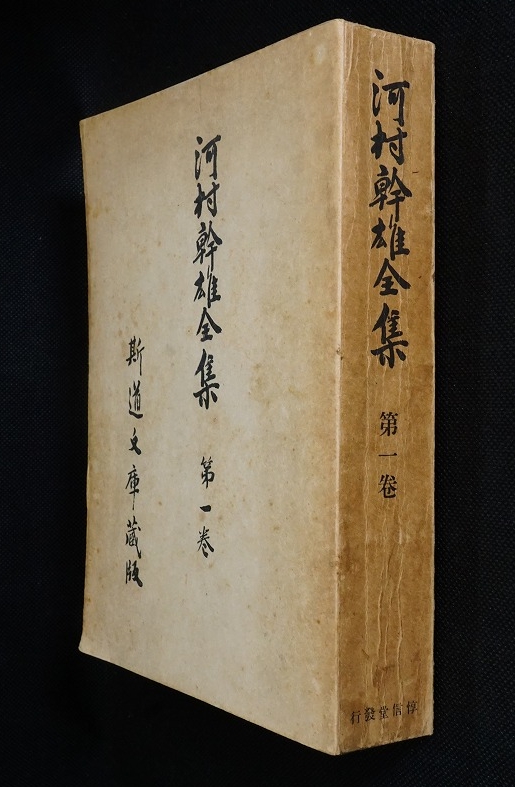 河村幹雄全集
第一巻
斯道文庫蔵版
河村幹雄全集
第一卷
惇信堂發行